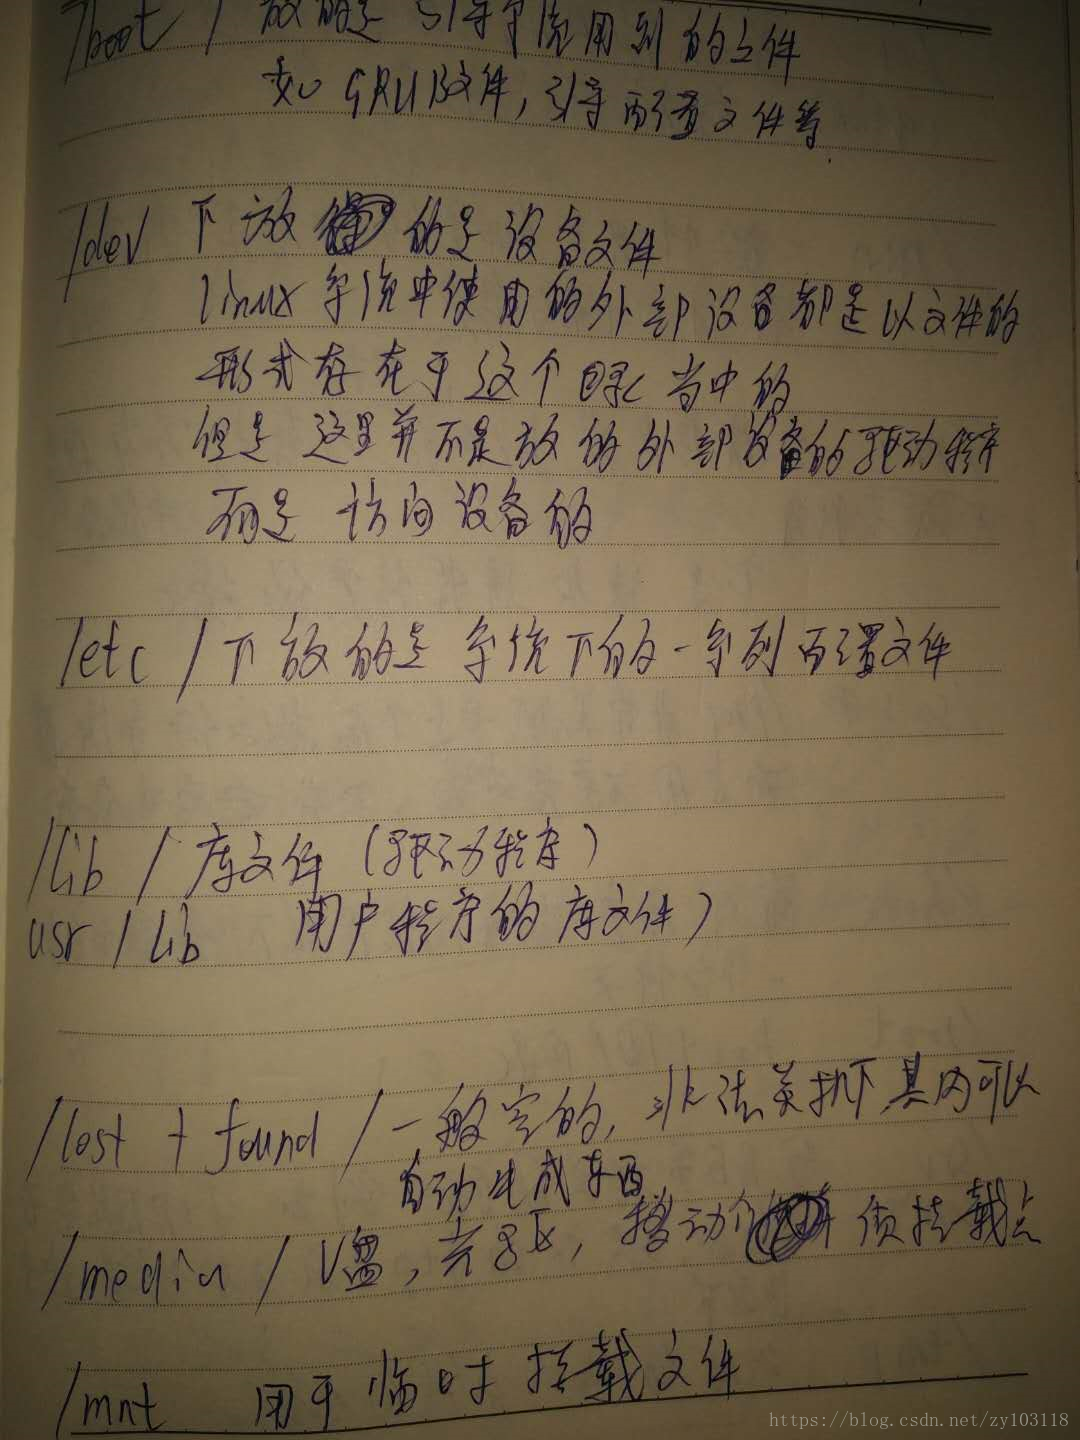 /boot / 放的是 引导系统用到的文件
如 GRUB文件，引导配置文件等.
/dev 下放 的是设备文件
linux 系统中使用的外部设备都是以文件的
形式存在于这个目录当中的
但是 这里并不是放的外部设备的驱动程序
而是 访问设备的
/etc / 下放的是 系统下的一系列配置文件
/lib / 库文件 (驱动程序)
usr / lib 用户程序的库文件)
/lost + found / 一般空的, 非法关机下,其内可以
自动生成东西
/media / U盘, 光驱, 移动介 质挂载点
/mnt 用于临时挂载文件
https://blog.csdn.net/zy103118